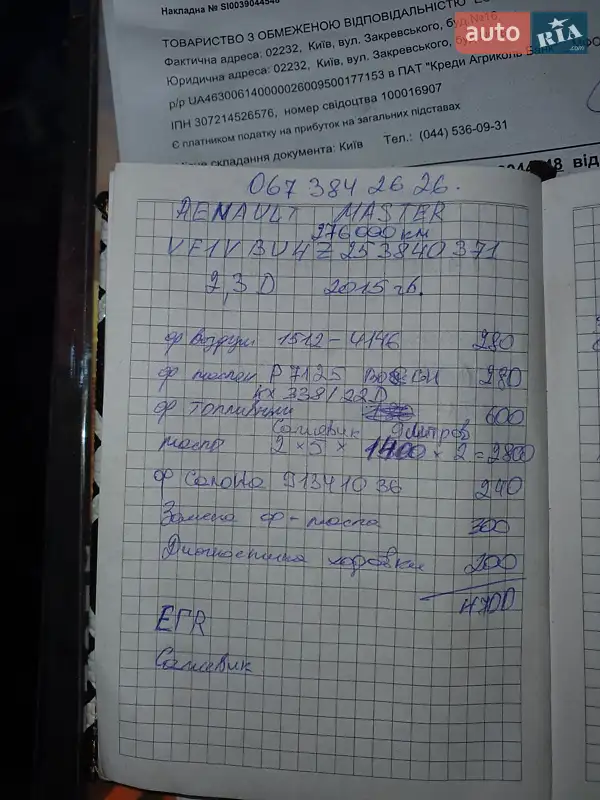 Накладна № SI0039044548
ТОВАРИСТВО З ОБМЕЖЕНОЮ ВІДПОВІДАЛЬНІСТЮ
Фактична адреса: 02232, Київ, вул. Закревського, буд.№16,
Юридична адреса: 02232, Київ, вул. Закревського,
р/р UA463006140000026009500177153 в ПАТ "Креди Агриколь Банк"
ІПН 307214526576, номер свідоцтва 100016907
Є платником податку на прибуток на загальних підставах
складання документа: Київ Тел.: (044) 536-09-31
від
auto RIA .com
067 384 26 26.
RENAULT MASTER
276000 км
VF1VBU4Z253840371
2,3 D 2015 гв.
ф воздуш 1512-4146 280
ф маслен P7125 280
KX 338/22D
ф топливный 600
Сальевик 9 литров
масло 2 × 5 × 1400 × 2 = 2800
ф салона 240
Замена ф-масла 300
Диагностика ходовки 200
4700
ЕГR
Сальевик